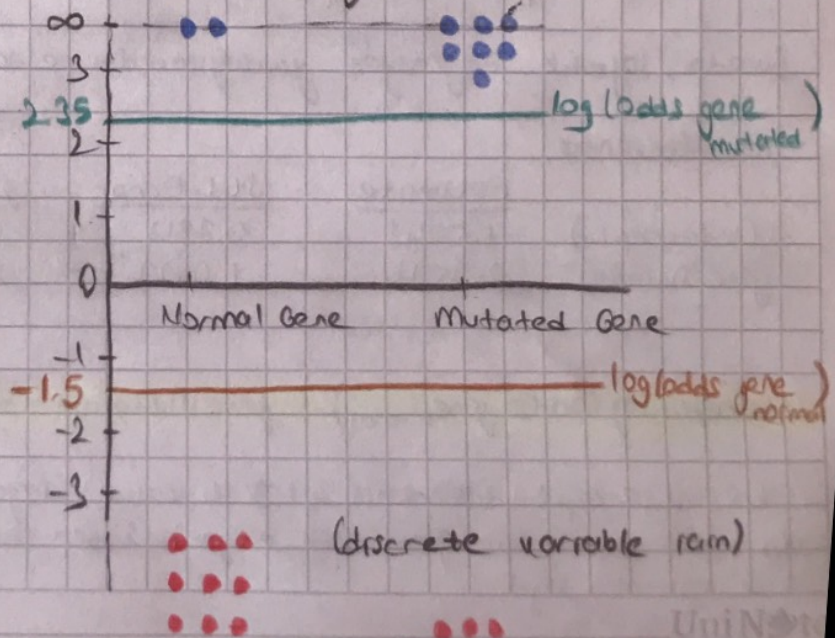 ∞
3
2.35 log(odds gene mutated)
2
1
0
Normal Gene Mutated Gene
-1
-1.5 log(odds gene normal)
-2
-3
(discrete varriable